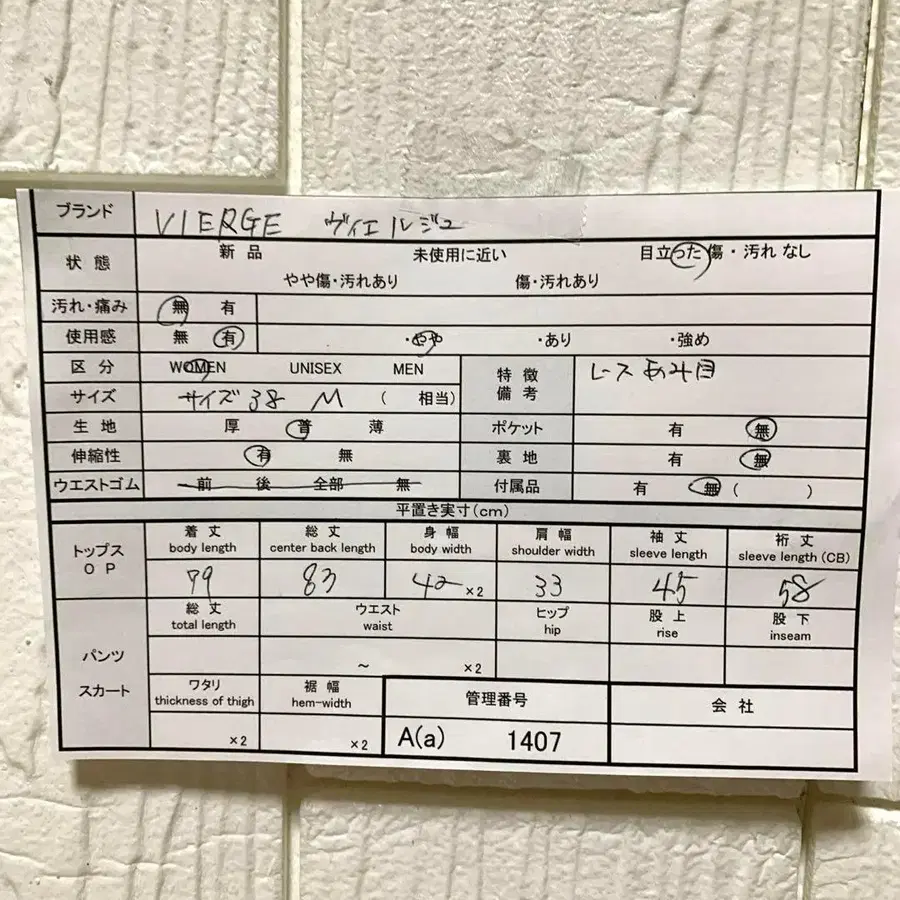 ブランド VIERGE ヴィエルジュ
状態 新品 未使用に近い 目立った傷・汚れなし
やや傷・汚れあり 傷・汚れあり
汚れ・痛み 無 有
使用感 無 有 ・やや ・あり ・強め
区分 WOMEN UNISEX MEN 特徴 備考 レースあみ目
サイズ サイズ38 M ( 相当)
生地 厚 普 薄 ポケット 有 無
伸縮性 有 無 裏地 有 無
ウエストゴム 前 後 全部 無 付属品 有 無 ( )
平置き実寸(cm)
トップス OP 着丈 総丈 身幅 肩幅 袖丈 裄丈
body length center back length body width shoulder width sleeve length sleeve length (CB)
79 83 42 ×2 33 45 58
パンツ スカート 総丈 ウエスト ヒップ 股上 股下
total length waist hip rise inseam
~ ×2
ワタリ 裾幅 管理番号 会社
thickness of thigh hem-width
×2 ×2 A(a) 1407